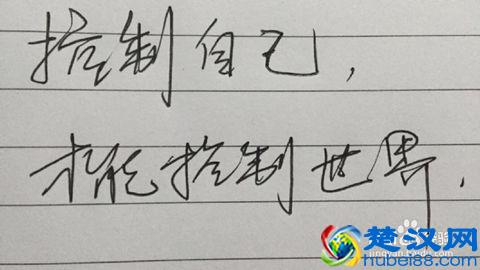 控制自己，
才能控制世界.
楚汉网
hubei88.com